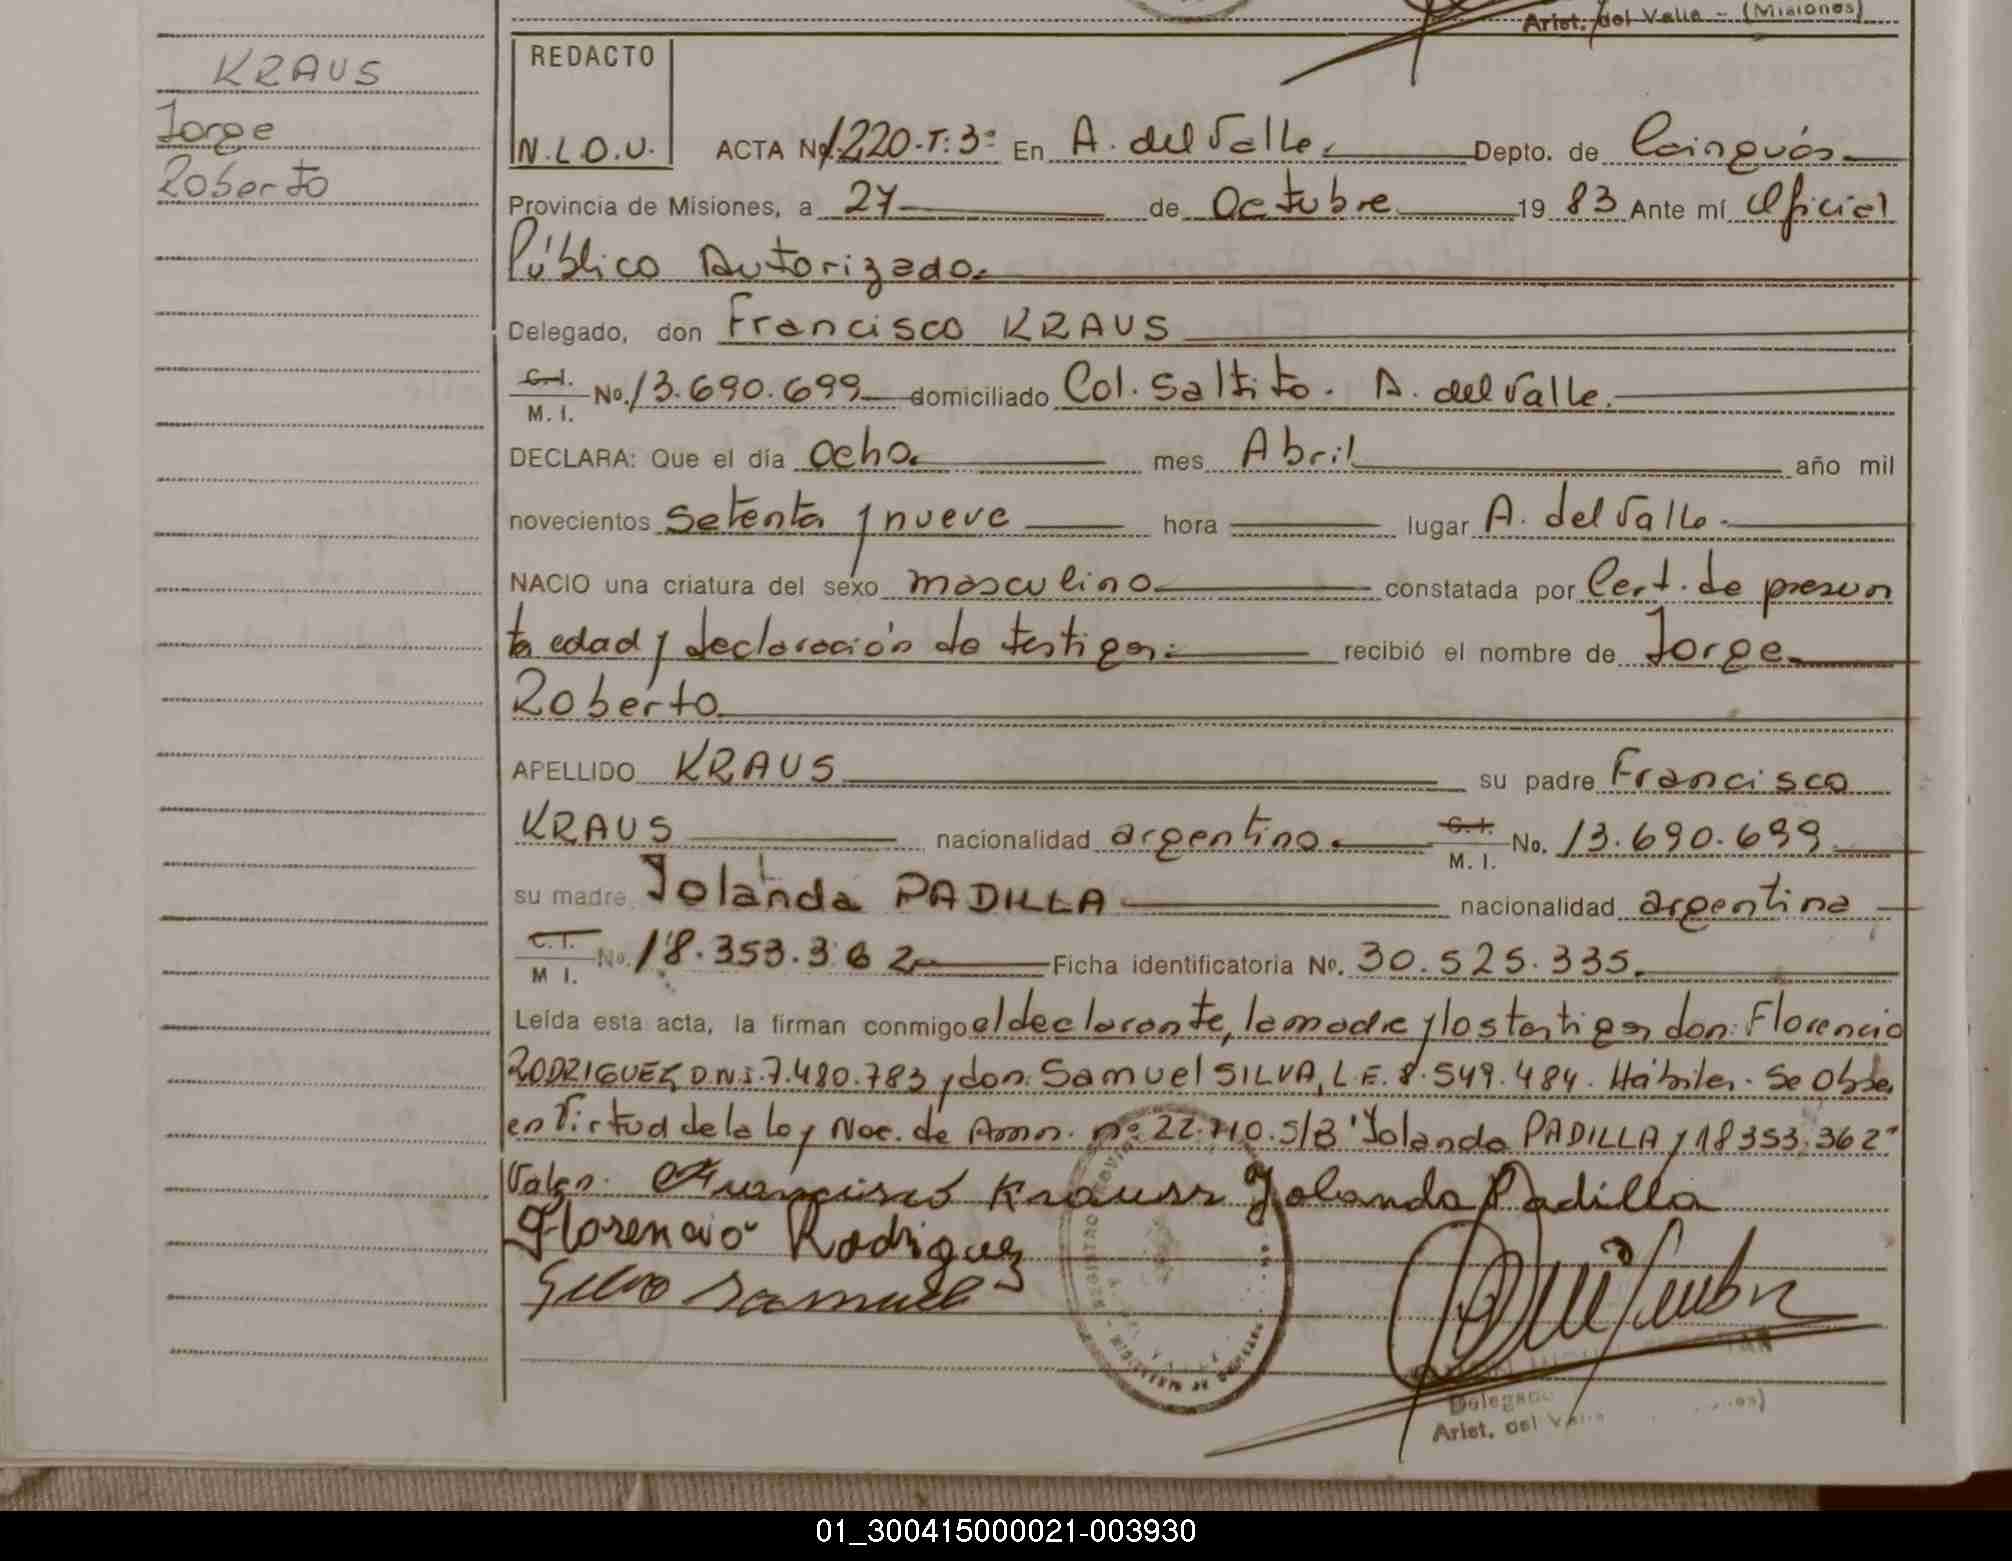 Arist. del Valle - (Misiones)
KRAUS
Jorge
Roberto
REDACTO
N.L.O.U.
ACTA No 1.220.T:3º En A. del Valle. Depto. de Cainguás.
Provincia de Misiones, a 27 de Octubre 19 83 Ante mí Oficial
Público Autorizado.
Delegado, don Francisco KRAUS
C.I.
M. I. No. 13.690.699 domiciliado Col. Saltito. A. del Valle.
DECLARA: Que el día Ocho. mes Abril año mil
novecientos setenta y nueve hora lugar A. del Valle.
NACIO una criatura del sexo masculino constatada por Cert. de presun
ta edad y declaración de testigos: recibió el nombre de Jorge
Roberto
APELLIDO KRAUS su padre Francisco
KRAUS nacionalidad argentino. C.I.
M. I. No. 13.690.699
su madre Jolanda PADILLA nacionalidad argentina
C.I.
M I. No. 18.353.362 Ficha identificatoria No. 30.525.335.
Leída esta acta, la firman conmigo el declarante, la madre y los testigos don: Florencio
RODRIGUEZ, D.N.I. 7.480.783 y don: Samuel SILVA, L.E. 8.549.484. Hábiles. Se
en Virtud de la Ley Nac. de Amn. nº 22.710. S/B "Jolanda PADILLA y 18353.362"
Valen. Francisco Krauss Jolanda Padilla
Florencio Rodriguez
Silva Samuel
Delegado
Arist. del Valle
01_300415000021-003930